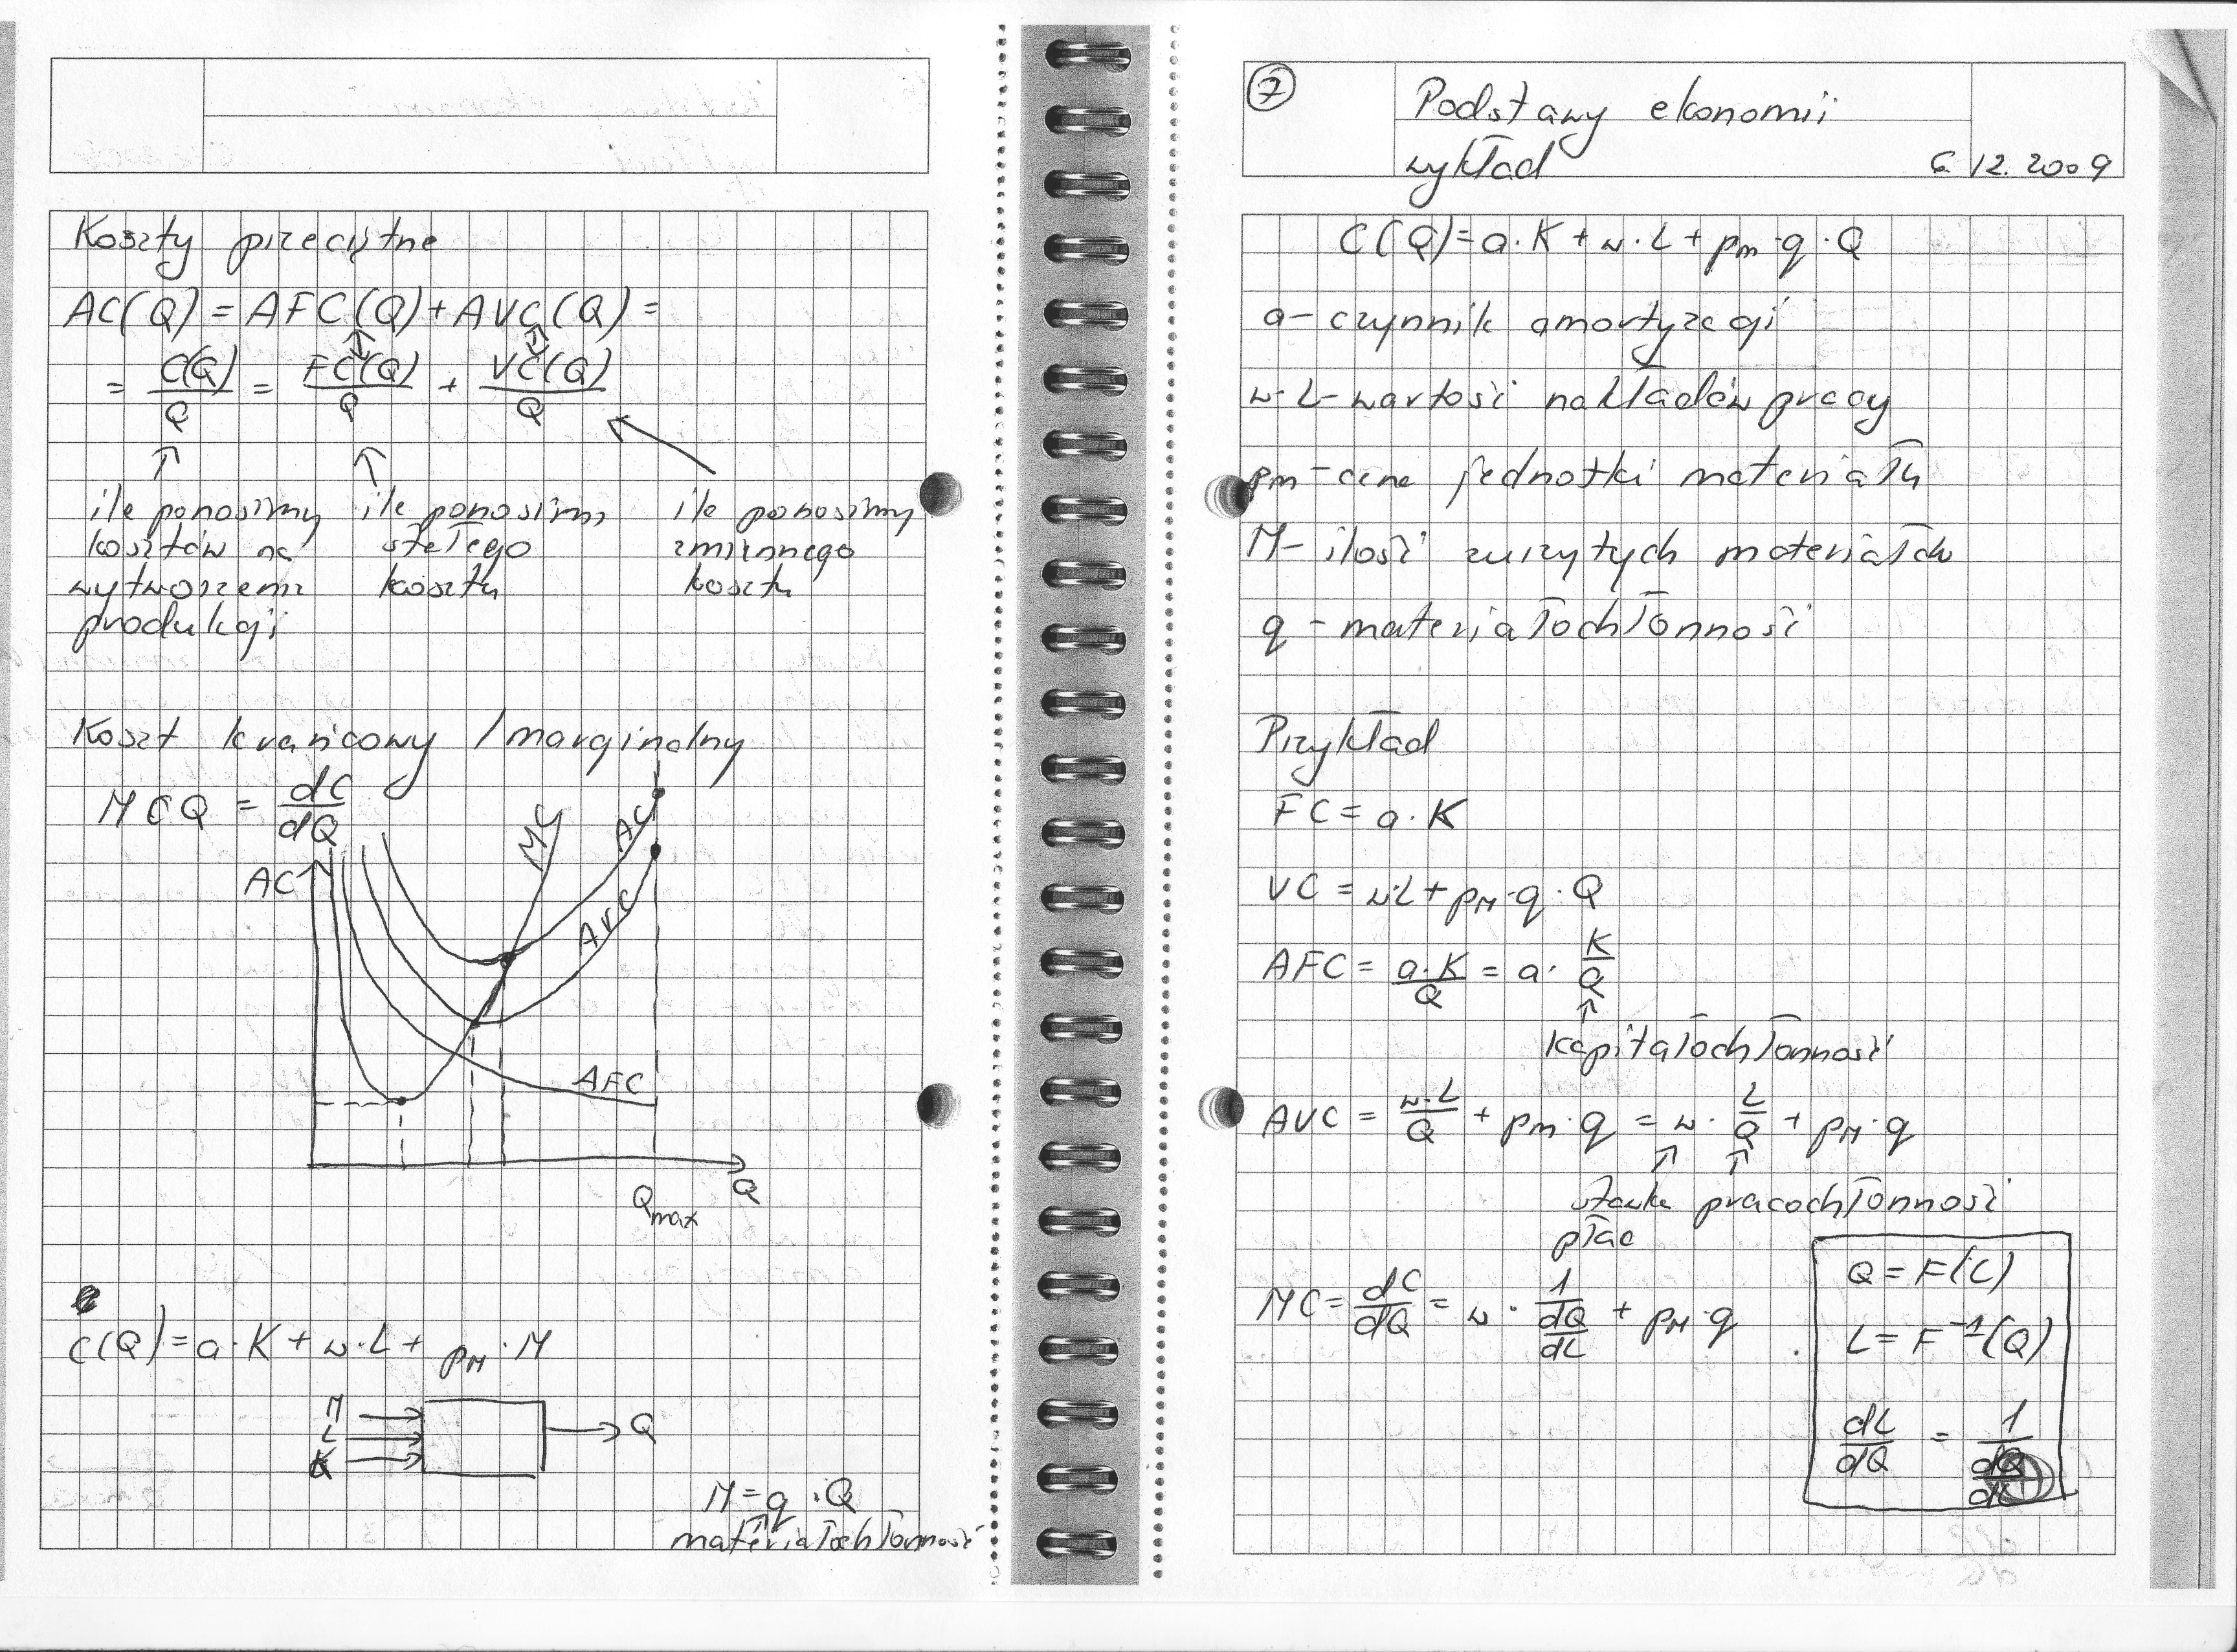 Koszty przeciętne
AC(Q) = AFC(Q) + AVC(Q) =
= C(Q)/Q = FC(Q)/Q + VC(Q)/Q
ile ponosimy ile ponosimy ile ponosimy
kosztów na stałego zmiennego
wytworzenie kosztu kosztu
produkcji
Koszt krańcowy / marginalny
MCQ = dC/dQ
AC
MC
AC
AVC
AFC
Qmax
Q
C(Q) = a·K + w·L + pM·M
M
L
K
Q
M = q·Q
materiałochłonność
7
Podstawy ekonomii
wykład
6 12.2009
C(Q) = a·K + w·L + pm·q·Q
a - czynnik amortyzacji
w·L - wartość nakładów pracy
pm - cena jednostki materiału
M - ilość zużytych materiałów
q - materiałochłonność
Przykład
FC = a·K
VC = w·L + pM·q·Q
AFC = a·K/Q = a·K/Q
kapitałochłonność
AVC = w·L/Q + pm·q = w·L/Q + pM·q
stawka pracochłonność
płac
MC = dC/dQ = w·1/(dQ/dL) + pM·q
Q = F(L)
L = F⁻¹(Q)
dL/dQ = 1/(dQ/dL)